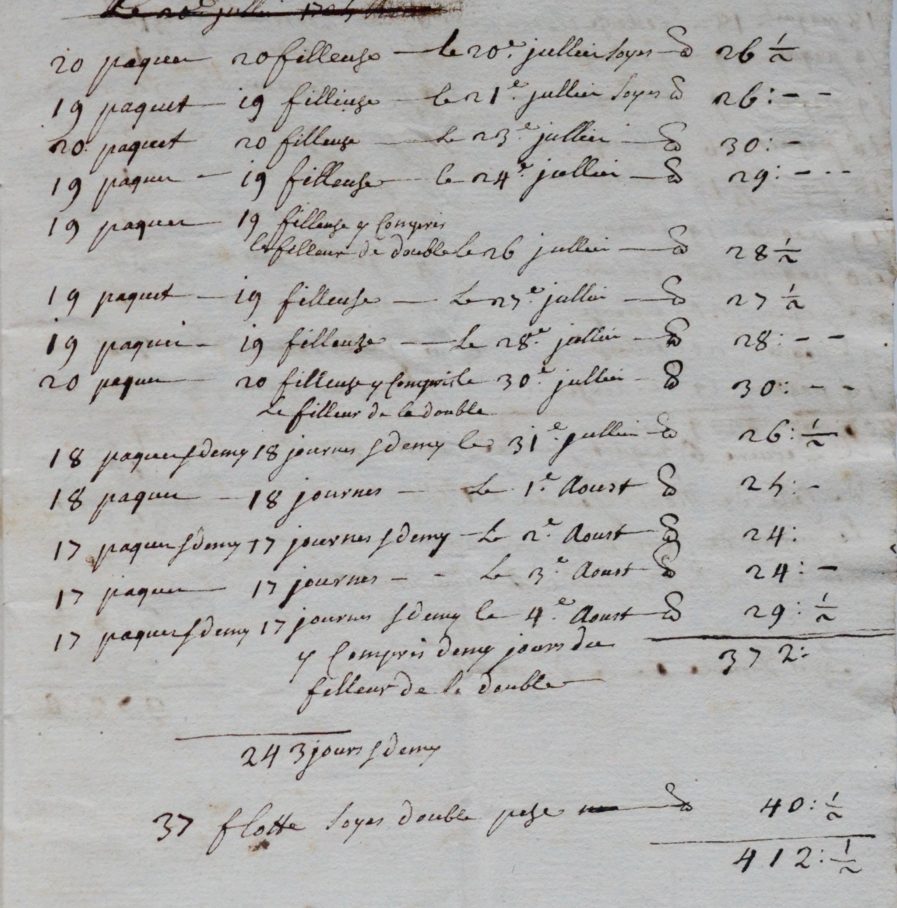 Le 20e jullier 1705
20 paquet 20 filleuse — le 20e jullier soyes — ℔ 26 ½
19 paquet — 19 filleuse — le 21e jullier soyes ℔ 26: – –
20 paquet 20 filleuse — Le 23e jullier — ℔ 30: –
19 paquet — 19 filleuse — le 24e jullier — ℔ 29: – – –
19 paquet — 19 filleuse y Compris
le filleur de double le 26 jullier — ℔ 28 ½
19 paquet — 19 filleuse — Le 27e jullier — ℔ 27 ½
19 paquet – 19 filleuse — Le 28e jullier – ℔ 28: – –
20 paquet — 20 filleuse y Compris le 30e jullier – ℔ 30: – –
Le filleur de le double
18 paquet s demy 18 journes s demy le 31e jullier – ℔ 26: ½
18 paquet — 18 journes — Le 1e Aoust ℔ 25: –
17 paquet s demy 17 journes s demy – Le 2e Aoust ℔ 24:
17 paquet — 17 journes – – Le 3e Aoust ℔ 24: –
17 paquet s demy 17 journes s demy le 4e Aoust — ℔ 29: ½
y Compris demy jours du 372:
filleur de le double —
243 jours s demy
37 flotte soyes double peze — ℔ 40: ½
412: ½